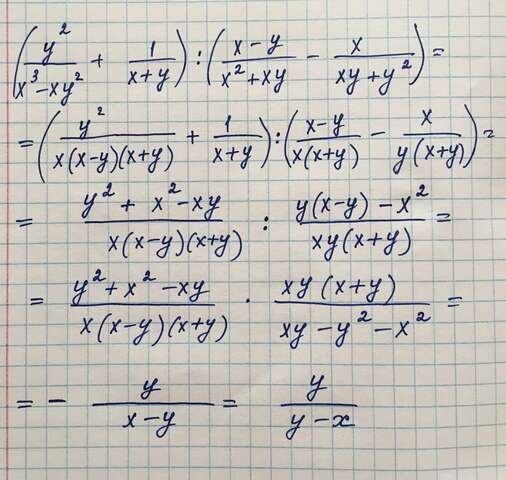 (y²/(x³-xy²) + 1/(x+y)) : ((x-y)/(x²+xy) - x/(xy+y²)) =
= (y²/(x(x-y)(x+y)) + 1/(x+y)) : ((x-y)/(x(x+y)) - x/(y(x+y))) =
= (y² + x²-xy)/(x(x-y)(x+y)) : (y(x-y) - x²)/(xy(x+y)) =
= (y² + x² - xy)/(x(x-y)(x+y)) · (xy(x+y))/(xy - y² - x²) =
= - y/(x-y) = y/(y-x)